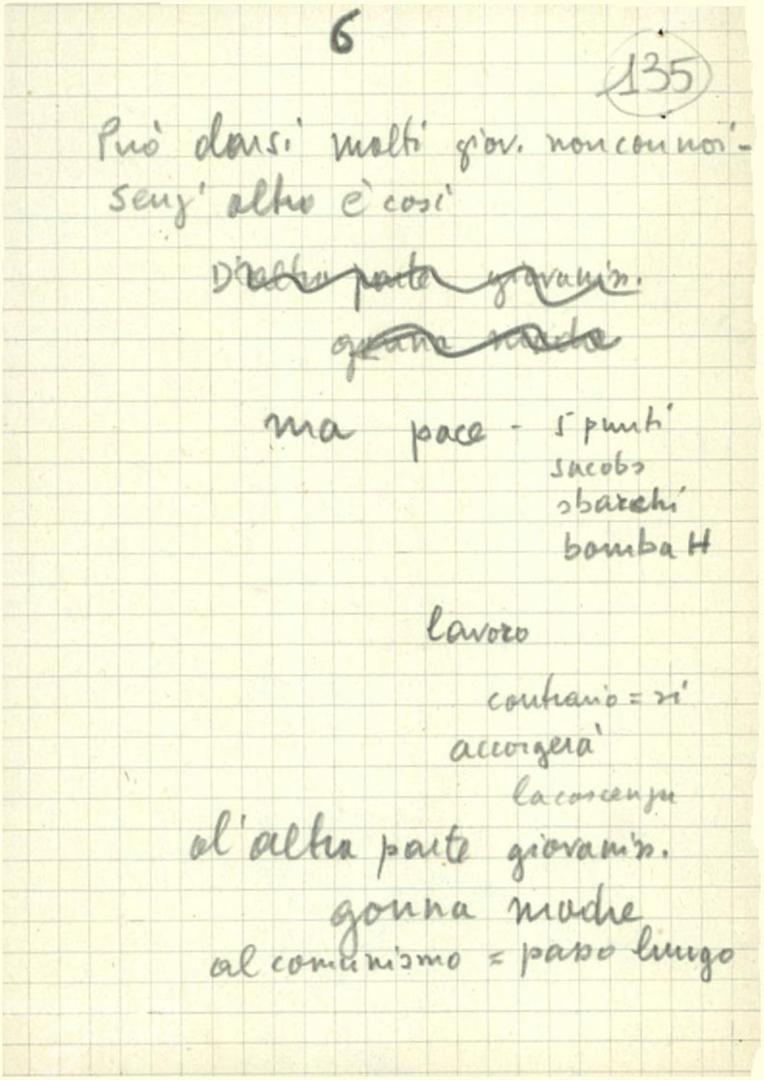 6
135
Può darsi molti giov. non con noi -
senz' altro è così
D'altra parte giovaniss.
gonna madre
ma pace - 5 punti
Jacobs
sbarchi
bomba H
lavoro
contrario = si
accorgerà
la coscenza
d'altra parte giovaniss.
gonna madre
al comunismo = passo lungo